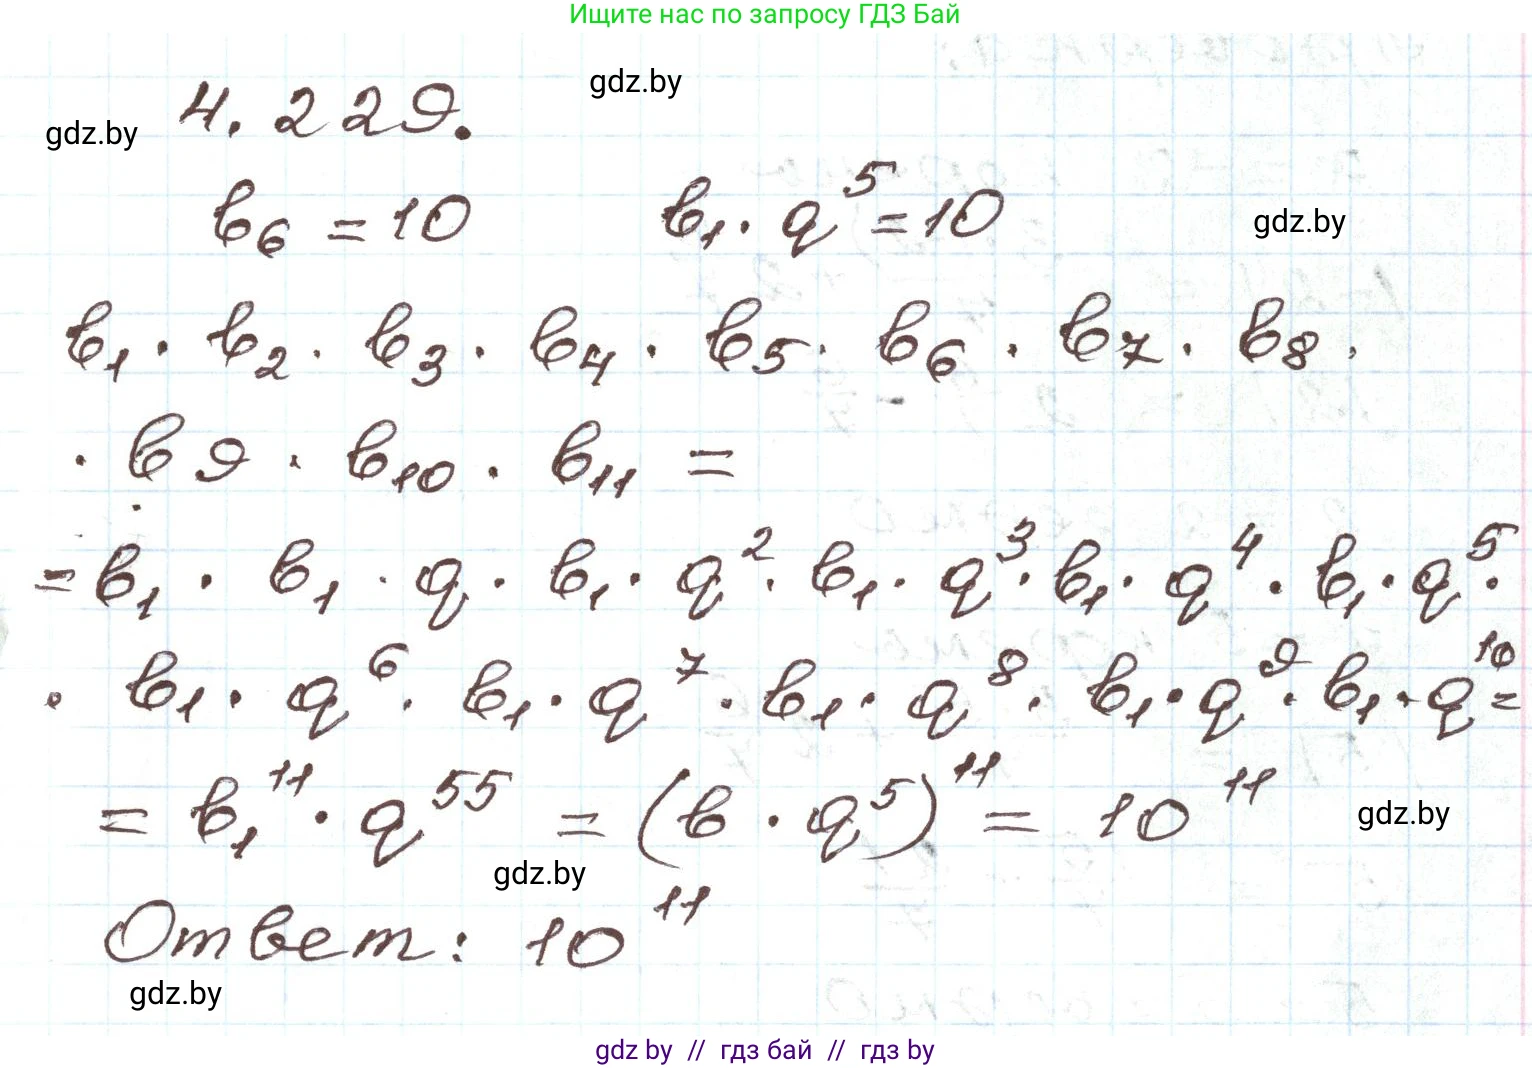 Ищите нас по запросу ГДЗ Бай
gdz.by
4.229.
gdz.by
b₆ = 10 b₁ · q⁵ = 10
gdz.by
b₁ · b₂ · b₃ · b₄ · b₅ · b₆ · b₇ · b₈ ·
· b₉ · b₁₀ · b₁₁ =
= b₁ · b₁ · q · b₁ · q² · b₁ · q³ · b₁ · q⁴ · b₁ · q⁵ ·
· b₁ · q⁶ · b₁ · q⁷ · b₁ · q⁸ · b₁ · q⁹ · b₁ · q¹⁰ =
= b₁¹¹ · q⁵⁵ = (b · q⁵)¹¹ = 10¹¹
gdz.by
gdz.by
Ответ: 10¹¹
gdz.by
gdz by // гдз бай // гдз by